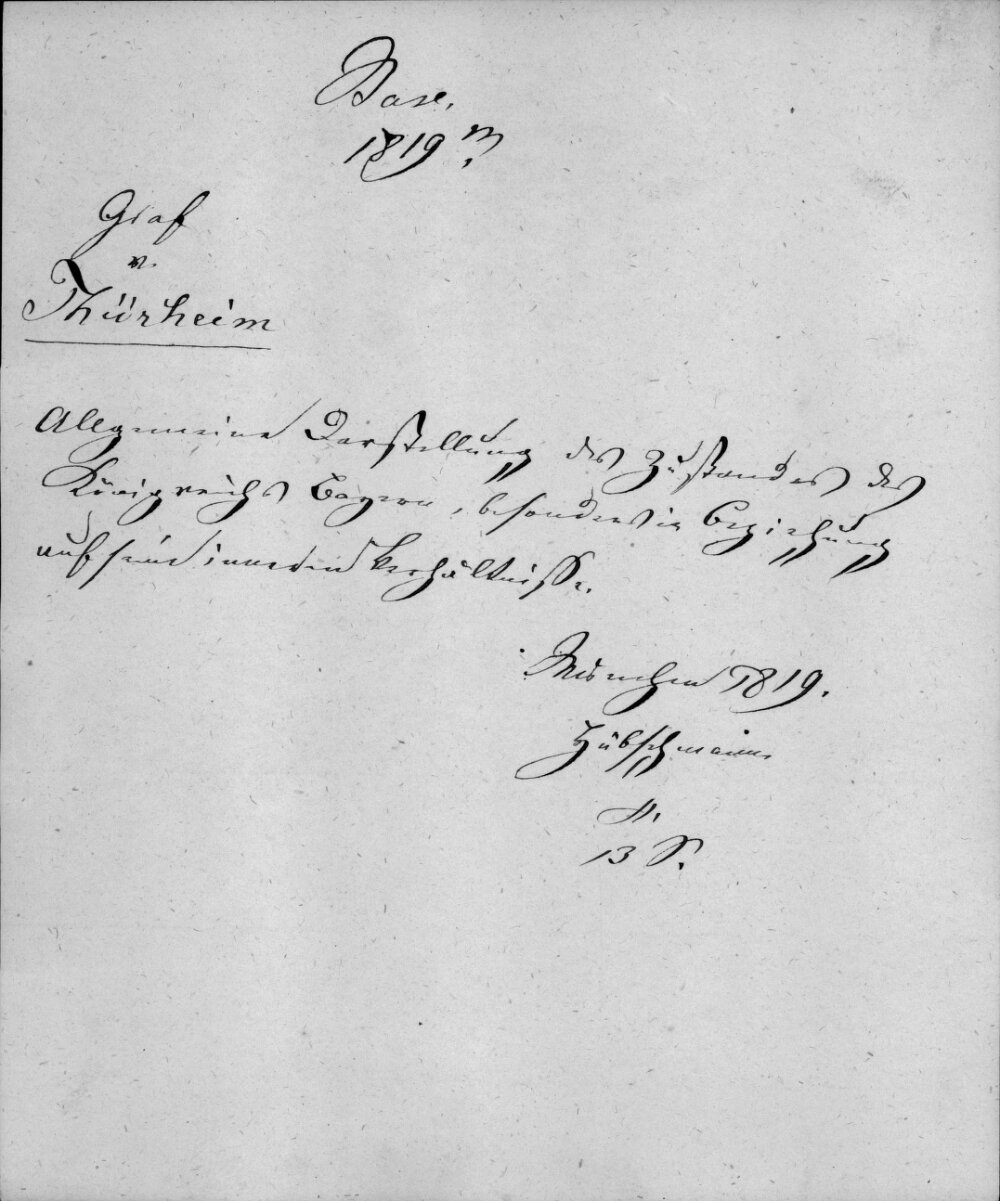 Bavar.
1819 m.
Graf
v.
Thürheim
Allgemeine Darstellung des Zustandes des
Königreichs Bayern, besonders in Beziehung
auf seine inneren Verhältnisse.
München 1819.
Hübschmann
4.
13 S.